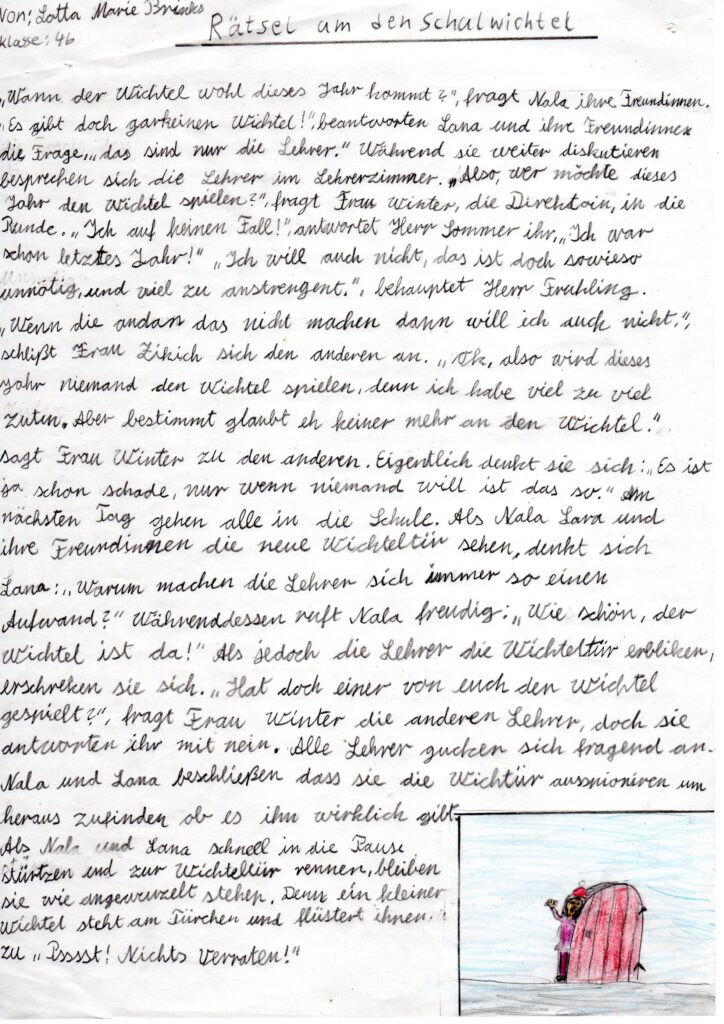 Von: Lotta Marie Brinks
Klasse: 4b
Rätsel um den Schulwichtel
„Wann der Wichtel wohl dieses Jahr kommt?", fragt Nala ihre Freundinnen.
„Es gibt doch garkeinen Wichtel!", beantworten Lana und ihre Freundinnen
die Frage, „das sind nur die Lehrer." Während sie weiter diskutieren
besprechen sich die Lehrer im Lehrerzimmer. „Also, wer möchte dieses
Jahr den Wichtel spielen?", fragt Frau Winter, die Direktoin, in die
Runde. „Ich auf keinen Fall!", antwortet Herr Sommer ihr, „Ich war
schon letztes Jahr!" „Ich will auch nicht, das ist doch sowieso
unnötig, und viel zu anstrengent.", behauptet Herr Fruhling.
„Wenn die andan das nicht machen dann will ich auch nicht.",
schlißt Frau Zikich sich den anderen an. „Ok, also wird dieses
Jahr niemand den Wichtel spielen, denn ich habe viel zu viel
zutun. Aber bestimmt glaubt eh keiner mehr an den Wichtel.".
sagt Frau Winter zu den anderen. Eigentlich denkt sie sich: „Es ist
ja schon schade, nur wenn niemand will ist das so." Am
nächsten Tag gehen alle in die Schule. Als Nala Lara und
ihre Freundinnen die neue Wichteltür sehen, denkt sich
Lana: „Warum machen die Lehrer sich immer so einen
Aufwand?" Währenddessen ruft Nala freudig: „Wie schön, der
Wichtel ist da!" Als jedoch die Lehrer die Wichteltür erbliken,
erschreken sie sich. „Hat doch einer von euch den Wichtel
gespielt?", fragt Frau Winter die anderen Lehrer, doch sie
antworten ihr mit nein. Alle Lehrer gucken sich fragend an.
Nala und Lana beschließen dass sie die Wichtür ausspioniren um
heraus zufinden ob es ihn wirklich gibt.
Als Nala und Lana schnell in die Pause
stürtzen und zur Wichteltür rennen, bleiben
sie wie angewurzelt stehen. Denn ein kleiner
Wichtel steht am Türchen und flüstert ihnen
zu „Psssst! Nichts Verraten!"